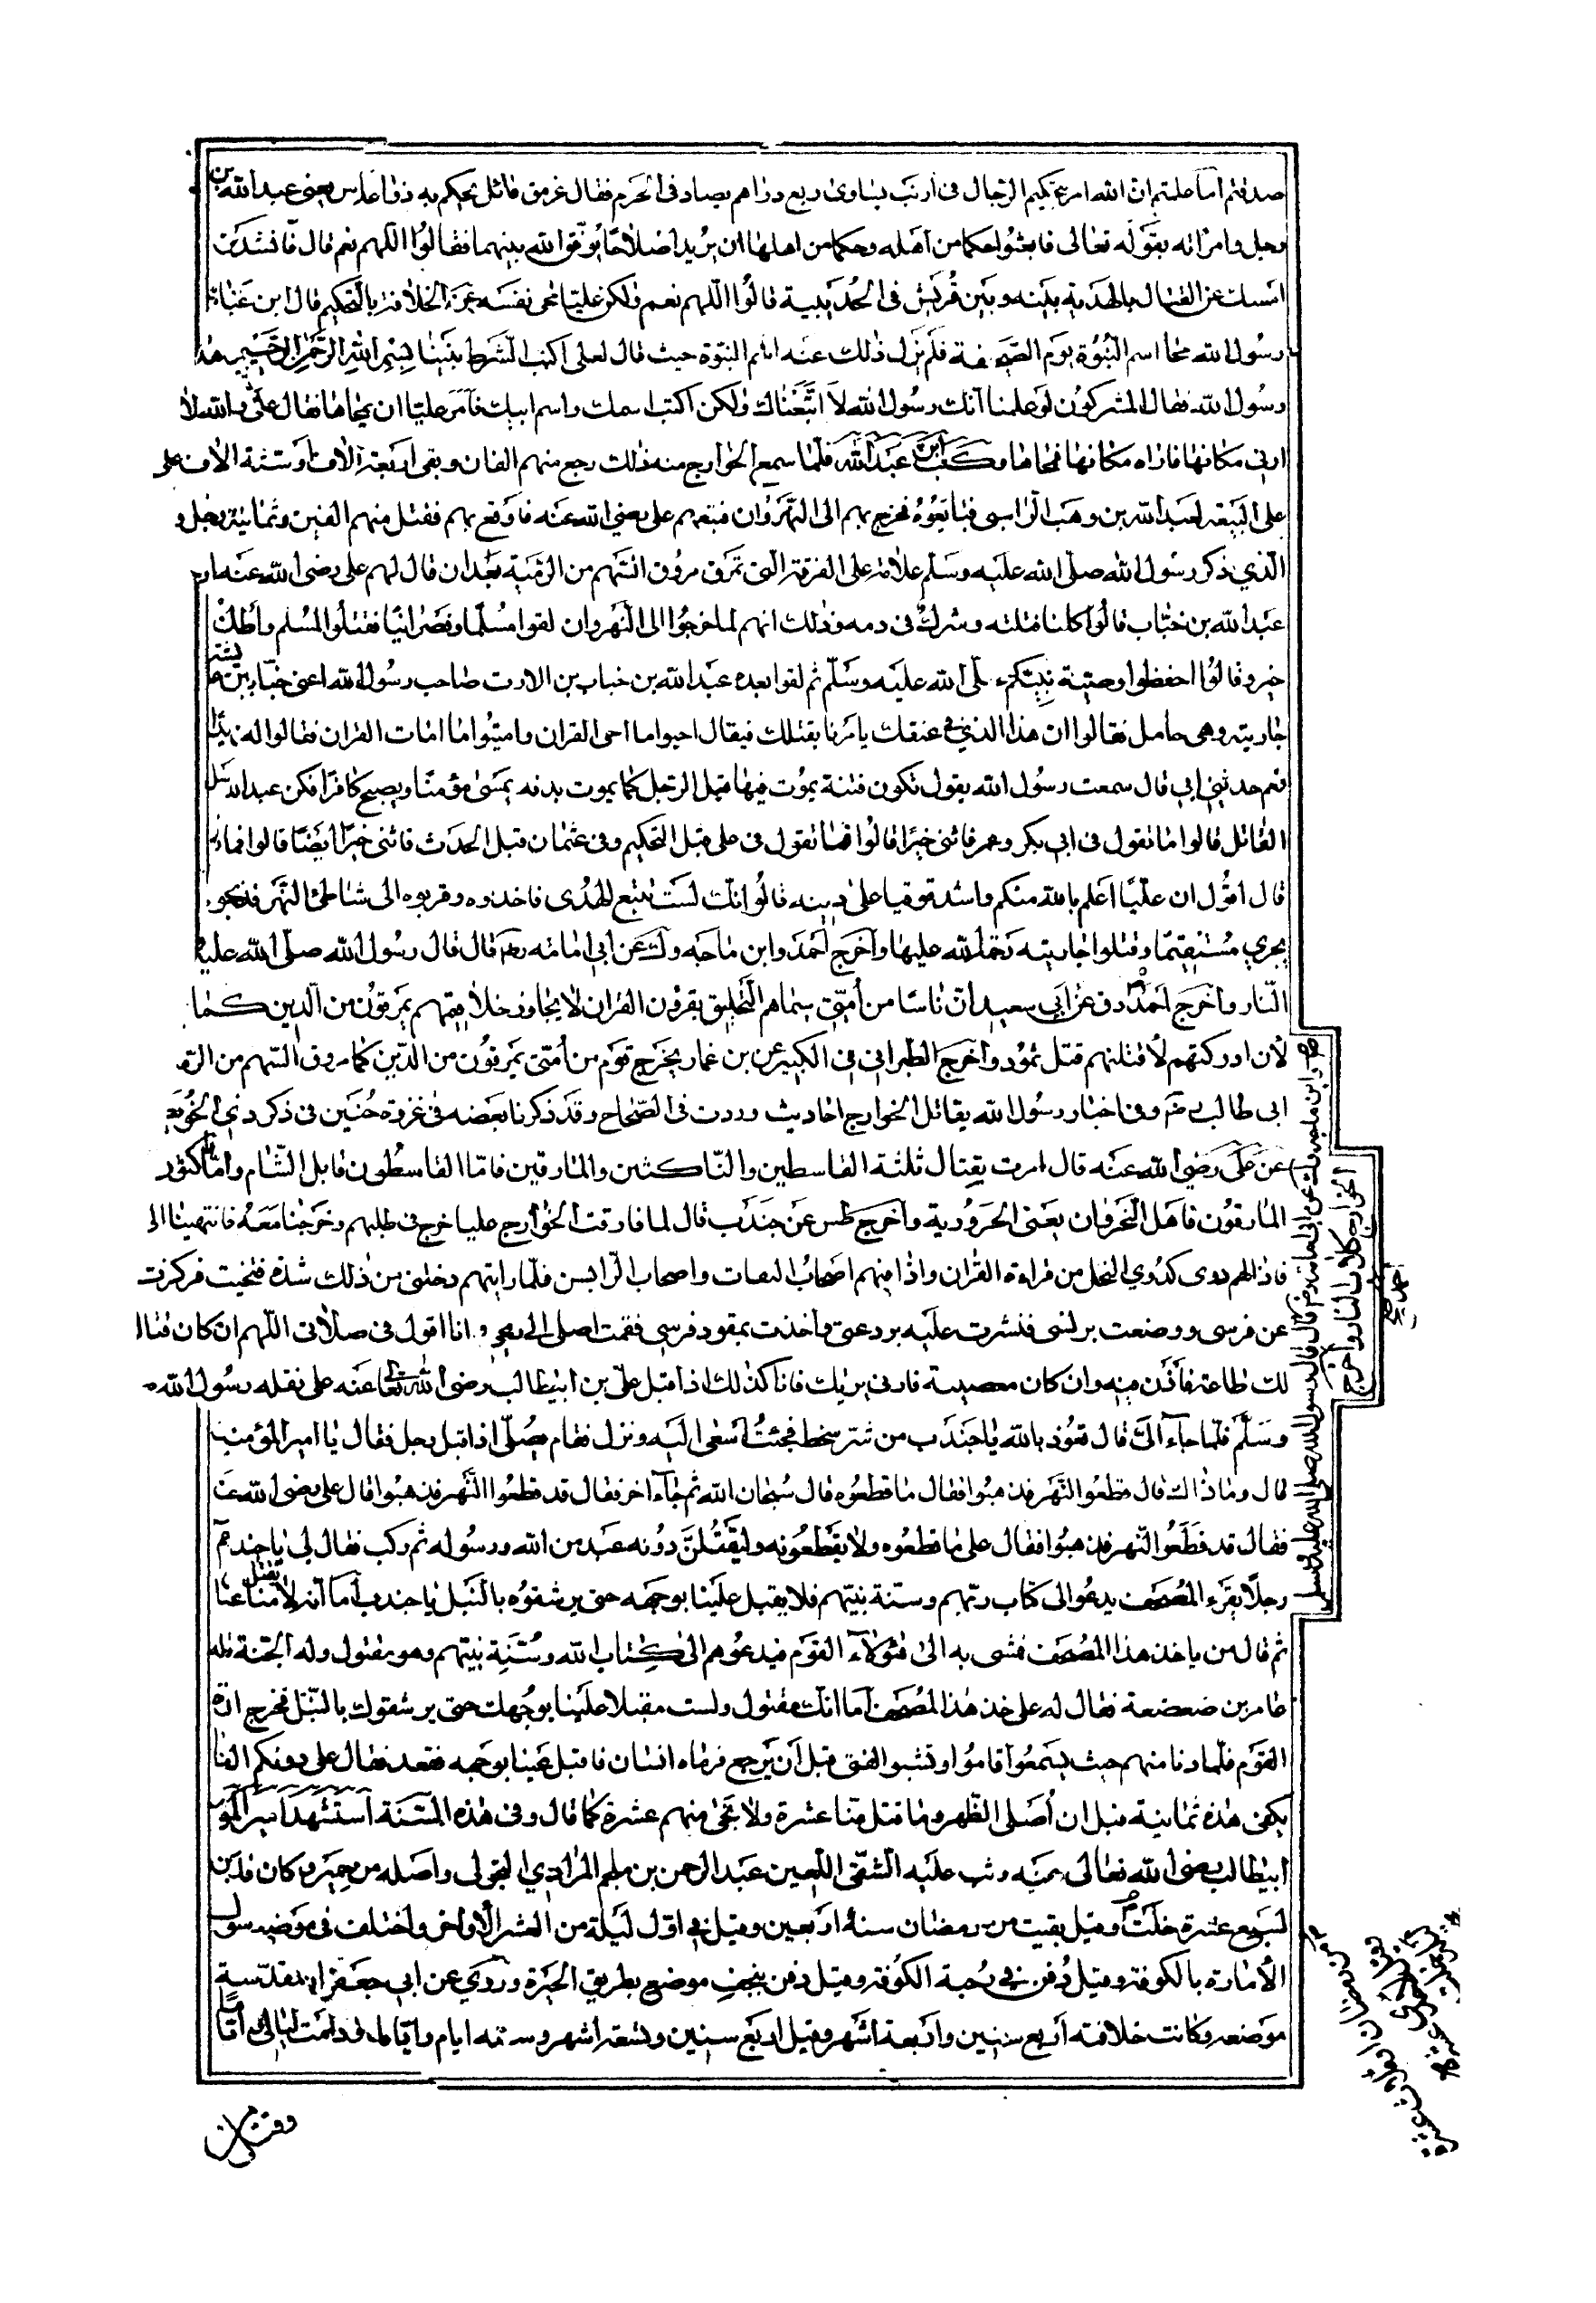 صدقتم أما علمتم ان الله امر بتحكيم الرجال فى أرنب يساوى ربع درهم يصاد فى الحرم فقال عز من قائل يحكم به ذوا عدل يعنى عبدالله بن
رجل وامرأته بقوله تعالى فابعثوا حكما من أهله وحكما من اهلها ان يريدا اصلاحا يوفق الله بينهما فقالوا اللهم نعم قال فانشدكم
امسك عن القتال بالهدنة بينه وبين قريش فى الحديبية قالوا اللهم نعم ولكن عليا محى نفسه عن الخلافة بالتحكيم قال ابن عباس
رسول الله محا اسم النبوة يوم الصحيفة فلم يزل ذلك عنه اسم النبوة حيث قال لعلى اكتب الشرط بيننا بسم الله الرحمن الرحيم هذا
رسول الله فقال المشركون لو علمنا أنك رسول الله لاتبعناك ولكن اكتب اسمك واسم ابيك فأمر عليا ان يمحاها فقال على والله لا
ارنى مكانها فاراه مكانها فمحاها وكتب ابن عبدالله فلما سمع الخوارج منه ذلك رجع منهم الفان وبقى اربعة آلاف أو ستة الاف على
على البيعة لعبد الله بن وهب الراسبى فبايعوه فخرج بهم الى النهروان فتبعهم على رضي الله عنه فاوقع بهم فقتل منهم الفين وثمانية رجل و
الذي ذكر رسول الله صلى الله عليه وسلم علامة على الفرقة التى تمرق مروق السهم من الرمية بعد ان قال لهم على رضى الله عنه
عبد الله بن خباب قالوا كلنا قتلته وشرك فى دمه وذلك انهم لما خرجوا الى النهروان لقوا مسلما ونصرانيا فقتلوا المسلم وأطلق
خيرو قالوا احفظوا وصية نبيكم صلى الله عليه وسلم ثم لقوا بعده عبد الله بن خباب بن الارت صاحب رسول الله اعنى خباب بن
جاريته وهى حامل فقالوا ان هذا الذي فى عنقك يامرنا بقتلك فيقال احيوا ما احى القران واميتوا ما امات القران فقالوا له
نعم حدثنى ابي قال سمعت رسول الله يقول تكون فتنة يموت فيها قلب الرجل كما يموت بدنه يمسى مؤمنا ويصبح كافرا فكن عبد الله
القاتل قالوا ما تقول فى ابى بكر وعمر فاثنى خيرا قالوا فما تقول فى على قبل التحكيم وفى عثمان قبل الحدث فاثنى خيرا أيضا قالوا فما
قال اقول ان عليا اعلم بالله منكم واشد توقيا على دينه قالوا انك لست تتبع الهدى فاخذوه وقربوه الى شاطئ النهر فذبحوه
يجري مستقيما وقتلوا جاريته رحمة الله عليها وأخرج أحمد وابن ماجه وك عن ابى امامه قال قال رسول الله صلى الله عليه
النار وأخرج احمد وق عن ابي سعيد ان ناسا من أمتى سيماهم التحليق يقرؤن القران لا يجاوز حلاقيمهم يمرقون من الدين كما
لأن ادركتهم لأقتلنهم قتل ثمود وأخرج الطبرانى فى الكبير عن بن عمار يخرج قوم من أمتى يمرقون من الدين كما مروق السهم من
ابى طالب وفى اخبار رسول الله يقاتل الخوارج احاديث وردت فى الصحاح وقد ذكرنا بعضه فى غزوة حنين فى ذكر ذي الخويصرة
عن على رضي الله عنه قال امرت بقتال ثلثة القاسطين والناكثين والمارقين فاما القاسطون فاهل الشام واما
المارقون فاهل النهروان يعنى الحرورية وأخرج طس عن جندب قال لما فارقت الخوارج عليا خرج فى طلبهم وخرجنا معه فانتهينا الى
فاذا لهم دوى كدوي النحل من قراءة القران واذا منهم اصحاب النفنات واصحاب البرانس فلما رايتهم دخلنى من ذلك شدة فتنحيت فركزت
عن فرسى ووضعت برنسى فنشرت عليه درعى واخذت بمقود فرسى فقمت اصلى الى رمحى وانا اقول فى صلاتى اللهم ان كان قتال
لك طاعة فأذن فيه وان كان معصية فارنى بريك فانا كذلك اذ اقبل على بن ابيطالب رضى الله تعالى عنه على بغلة رسول الله
وسلم فلما جاء الى قال تعوذ بالله يا جندب من شر سخط فجئت أسعى اليه ونزل فقام يصلى اذ اقبل رجل فقال يا امير المؤمنين
قال وما ذاك قال قطعوا النهر فذهبوا فقال ما قطعوه قال سبحان الله ثم جاء اخر فقال قد قطعوا النهر فذهبوا قال على رضى الله عنه
فقال قد قطعوا النهر فذهبوا فقال على ما قطعوه ولا يقطعونه وليقتلن دونه عهد من الله ورسوله ثم ركب فقال لى يا جندب
رجلا يقرء المصحف يدعو الى كتاب ربهم وسنة نبيهم فلا يقبل علينا بوجهه حتى يرشقوه بالنبل يا جندب أما انه لا يقتل منا
ثم قال من ياخذ هذا المصحف فمشى به الى هؤلاء القوم فيدعوهم الى كتاب الله وسنة نبيهم وهو مقتول وله الجنة فلم
عامر بن صعصعة فقال له على خذ هذا المصحف أما انك مقتول ولست مقبلا علينا بوجهك حتى يرشقوك بالنبل فخرج
القوم فلما دنا منهم حيث يسمعوا قاموا وتشبوا الفتى قبل أن يرجع فرماه انسان فاقبل علينا بوجهه فقعد فقال على دونكم القوم
بكفى هذه ثمانية قبل ان أصلى الظهر وما قتل منا عشرة ولا نجى منهم عشرة كما قال وفى هذه السنة أستشهد أمير المؤمنين
ابيطالب رضى الله تعالى عنه وثب عليه الشقى اللعين عبد الرحمن بن ملجم المرادي واصله من حمير وكان
لسبع عشرة خلت وقيل بقيت من رمضان سنة اربعين وقيل فى اول ليلة من العشر الأواخر واختلف فى موضع
الأمارة بالكوفة وقيل دفن فى رحبة الكوفة وقيل دفن بنجف موضع بطريق الحيرة وروي عن ابى جعفر ان
موضعه وكانت خلافته أربع سنين وأربعة أشهر وقيل اربع سنين وتسعة أشهر وستة ايام
وابن ماجه وك عن ابى امامة قال قال رسول الله صلى الله عليه وسلم
الخوارج كلاب النار وأخرج